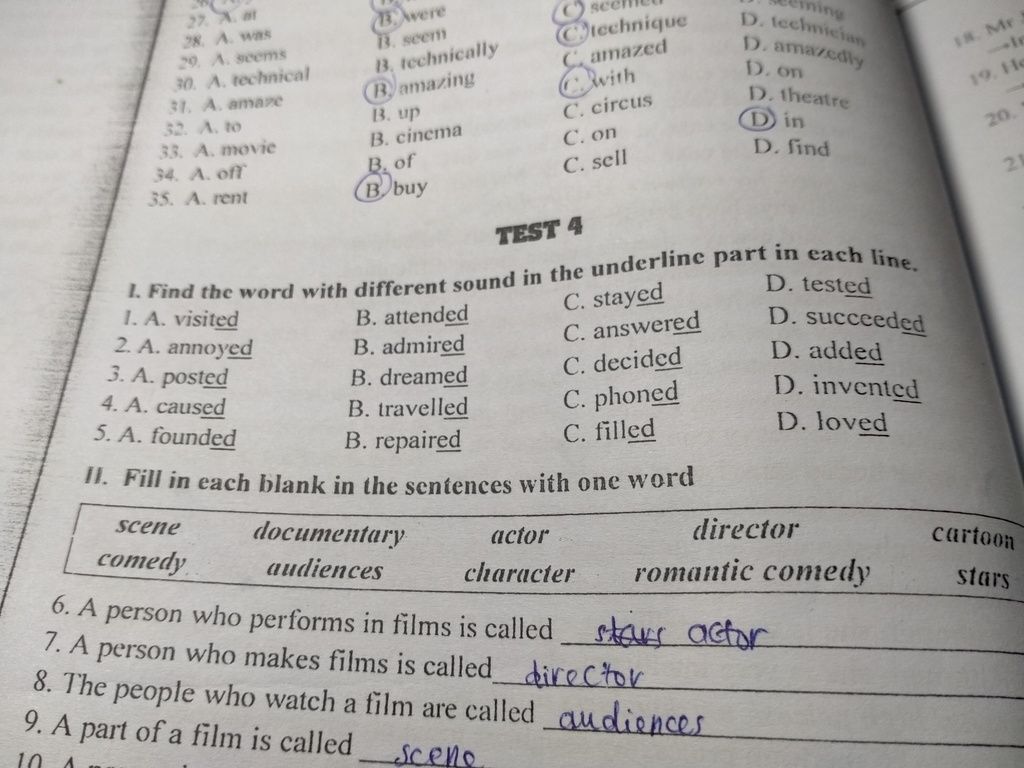 27. A. at B. were C. seemed D. seeming
28. A. was B. seem C. technique D. technician
29. A. seems B. technically C. amazed D. amazedly
30. A. technical B. amazing C. with D. on
31. A. amaze B. up C. circus D. theatre
32. A. to B. cinema C. on D. in
33. A. movie B. of C. sell D. find
34. A. off B. buy
35. A. rent
TEST 4
I. Find the word with different sound in the underline part in each line.
1. A. visited B. attended C. stayed D. tested
2. A. annoyed B. admired C. answered D. succeeded
3. A. posted B. dreamed C. decided D. added
4. A. caused B. travelled C. phoned D. invented
5. A. founded B. repaired C. filled D. loved
II. Fill in each blank in the sentences with one word
scene documentary actor director cartoon
comedy audiences character romantic comedy stars
6. A person who performs in films is called stars actor
7. A person who makes films is called director
8. The people who watch a film are called audiences
9. A part of a film is called scene
10. A
18. Mr
19. He
20.
21